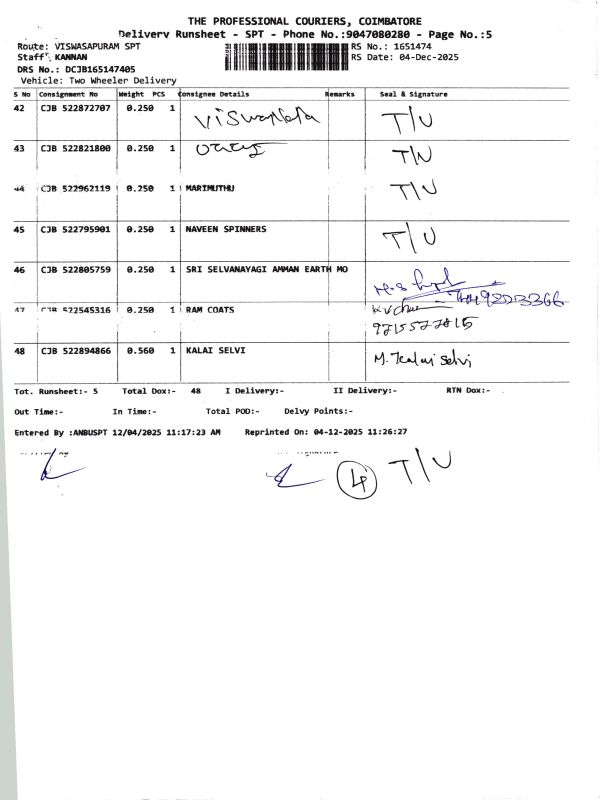 THE PROFESSIONAL COURIERS, COIMBATORE
Delivery Runsheet - SPT - Phone No.:9047080280 - Page No.:5
Route: VISWASAPURAM SPT RS No.: 1651474
Staff: KANNAN RS Date: 04-Dec-2025
DRS No.: DCJB165147405
Vehicle: Two Wheeler Delivery
S No Consignment No Weight PCS Consignee Details Remarks Seal & Signature
42 CJB 522872707 0.250 1 T/U
43 CJB 522821800 0.250 1 T/U
44 CJB 522962119 0.250 1 MARIMUTHU T/U
45 CJB 522795901 0.250 1 NAVEEN SPINNERS T/U
46 CJB 522805759 0.250 1 SRI SELVANAYAGI AMMAN EARTH MO
47 CJB 522545316 0.250 1 RAM COATS
48 CJB 522894866 0.560 1 KALAI SELVI M. Kalai selvi
Tot. Runsheet:- 5 Total Dox:- 48 I Delivery:- II Delivery:- RTN Dox:-
Out Time:- In Time:- Total POD:- Delvy Points:-
Entered By :ANBUSPT 12/04/2025 11:17:23 AM Reprinted On: 04-12-2025 11:26:27
4 T/U